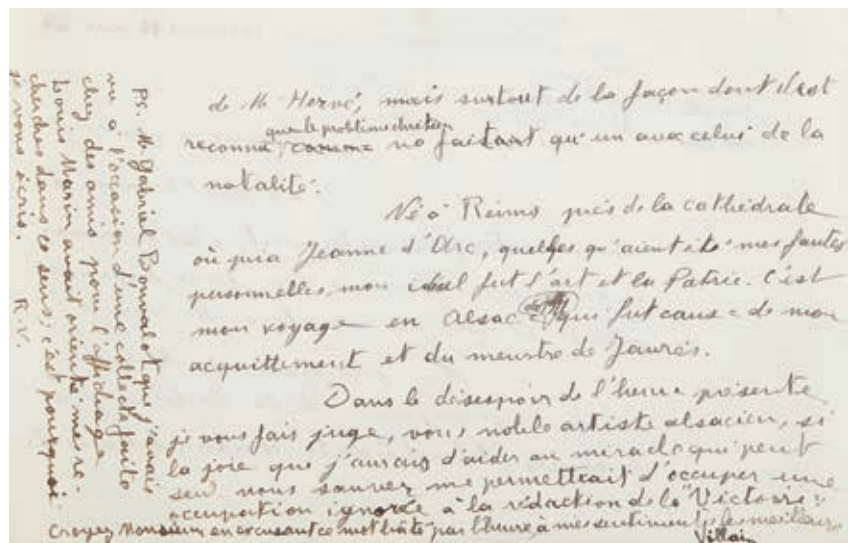 de M. Hervé, mais surtout de la façon dont il est
que le problème chrétien
reconnu comme no faisant qu'un avec celui de la
natalité.
Né à Reims près de la cathédrale
où pria Jeanne d'Arc, quelques qu'aient été mes fautes
personnelles, mon idéal fut l'art et la Patrie. C'est
mon voyage en Alsace qui fut cause de mon
acquittement et du meurtre de Jaurès.
Dans le désespoir de l'heure présente
je vous fais juge, vous noble artiste alsacien, si
la joie que j'aurais d'aider au miracle qui peut
seul nous sauver me permettrait d'occuper une
occupation ignorée à la rédaction de la Victoire.
Croyez Monsieur en excusant ce mot hâté par l'heure, à mes sentiments les meilleurs
Villain
P.S. M. Gabriel Bonvalot que j'avais
vu à l'occasion d'une collecte faite
chez des amis pour l'affichage
Louis Marin avait orienté mes re-
cherches dans ce sens; c'est pourquoi
je vous écris. R.V.